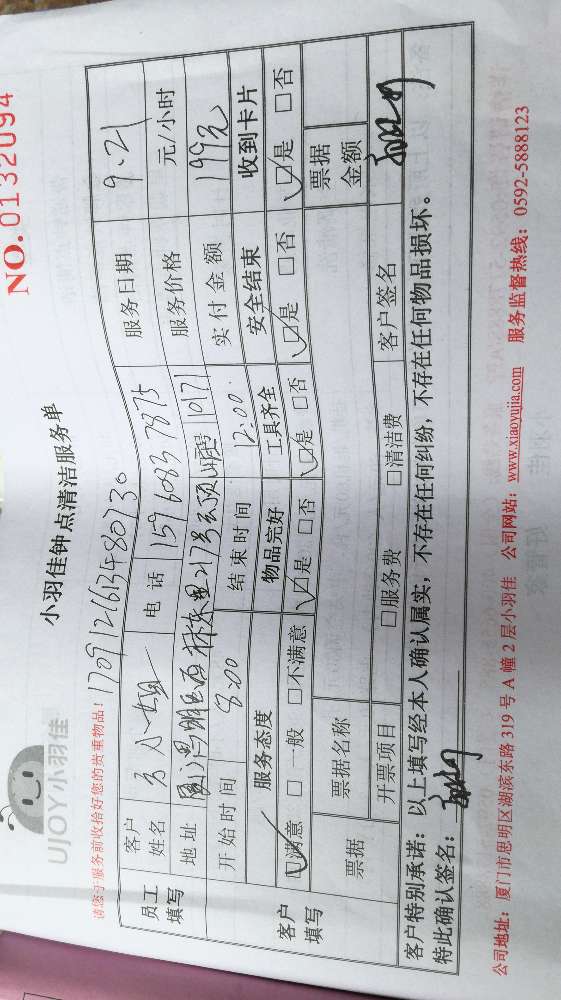 NO. 0132094
UJOY小羽佳
小羽佳钟点清洁服务单
请您于服务前收拾好您的贵重物品！
员工填写 客户姓名 小姐 电话 159 6083 7875 服务日期 9.21
地址 服务价格 元/小时
开始时间 8:00 结束时间 12:00 实付金额 199元
客户填写 服务态度 物品完好 工具齐全 安全结束 收到卡片
☑满意 □一般 □不满意 ☑是 □否 ☑是 □否 ☑是 □否 ☑是 □否
票据 票据名称 票据金额
开票项目 □服务费 □清洁费 客户签名
客户特别承诺：以上填写经本人确认属实，不存在任何纠纷，不存在任何物品损坏。
特此确认签名：
公司地址：厦门市思明区湖滨东路 319 号 A 幢 2 层小羽佳 公司网站：www.xiaoyujia.com 服务监督热线：0592-5888123